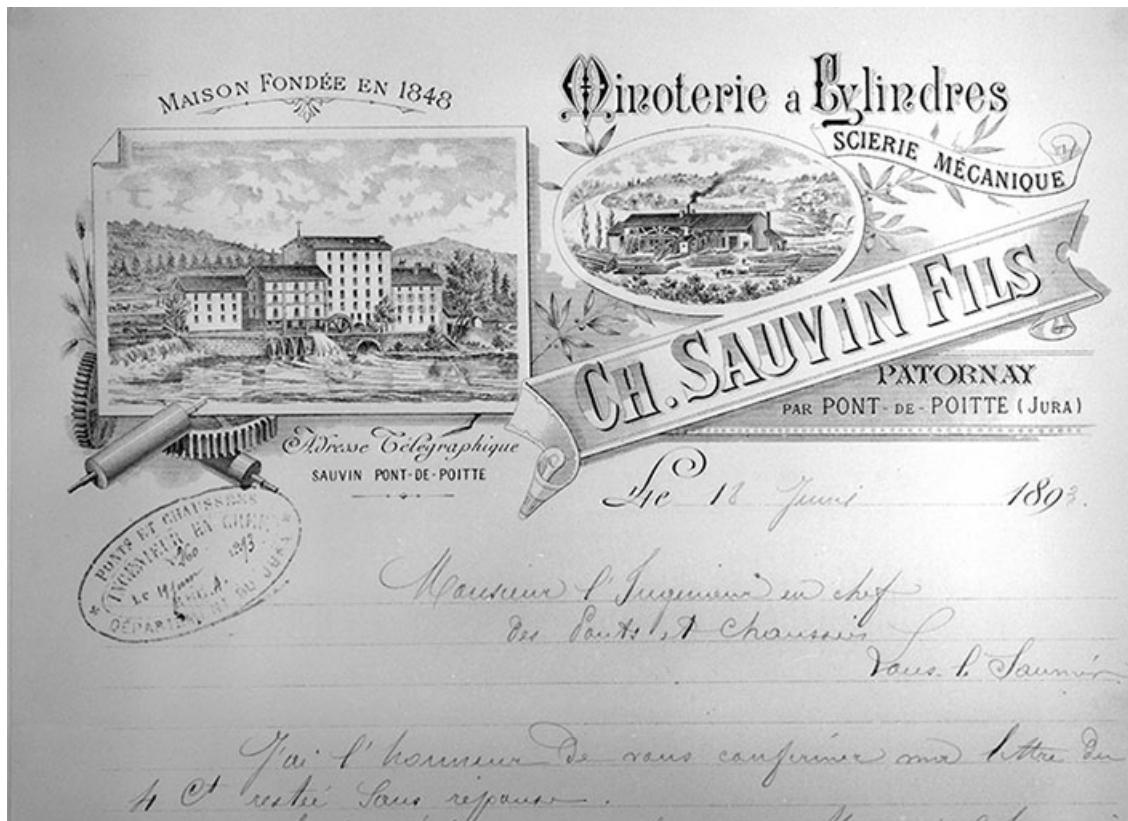 MAISON FONDÉE EN 1848
Minoterie a Cylindres
SCIERIE MÉCANIQUE
CH. SAUVIN FILS
PATORNAY
PAR PONT-DE-POITTE (JURA)
Adresse Télégraphique
SAUVIN PONT-DE-POITTE
Le 18 Juin 1893.
PONTS ET CHAUSSÉES
INGÉNIEUR EN CHEF
DÉPARTEMENT DU JURA
Monsieur l'Ingénieur en chef
des Ponts et Chaussées
Lons-le-Saunier
J'ai l'honneur de vous confirmer ma lettre du
4 Ct restée sans réponse.